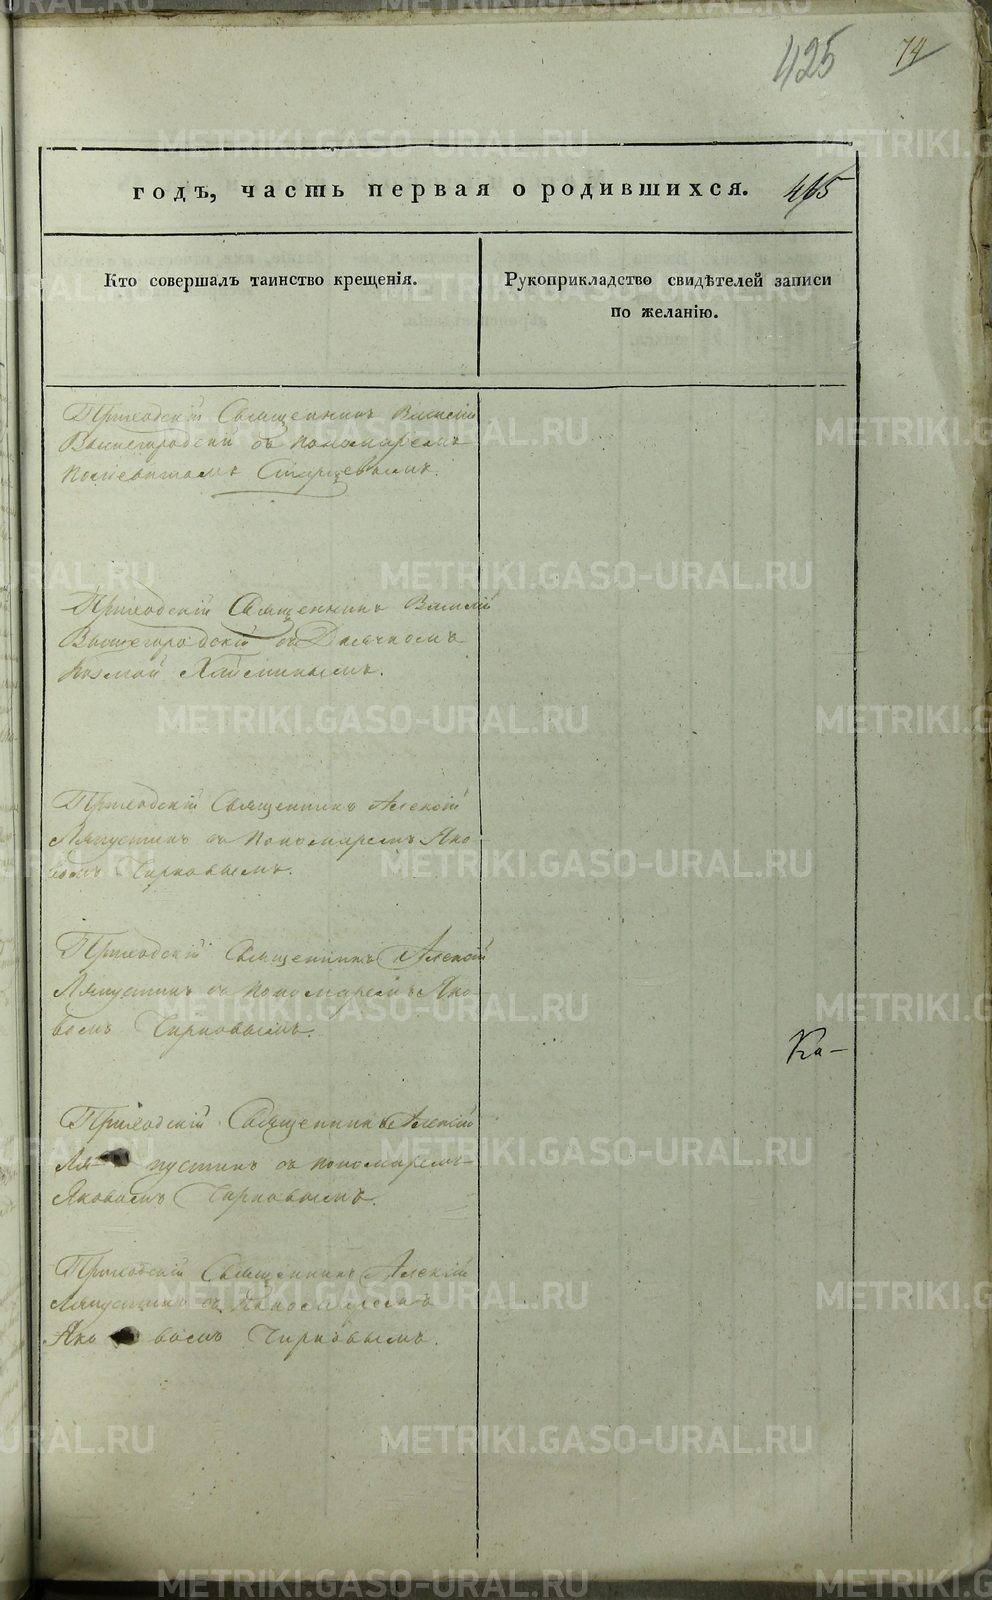 425 74
годъ, часть первая о родившихся. 465
Кто совершалъ таинство крещенія.
Рукоприкладство свидѣтелей записи
по желанію.
Приходскій Священникъ Василій
Вышегородскій съ пономаремъ
Старцевымъ.
Приходскій Священникъ Василій
Вышегородскій съ Дьячкомъ
Козмой
Приходскій Священникъ Алексій
Ляпустинъ съ пономаремъ Яко
вомъ Чирковымъ.
Приходскій Священникъ Алексій
Ляпустинъ съ пономаремъ Яко
вомъ Чирковымъ.
Ка-
Приходскій Священникъ Алексій
Ля- пустинъ съ пономаремъ
Яковомъ Чирковымъ.
Приходскій Священникъ Алексій
Ляпустинъ съ Пономаремъ
Яко вомъ Чирковымъ.
METRIKI.GASO-URAL.RU